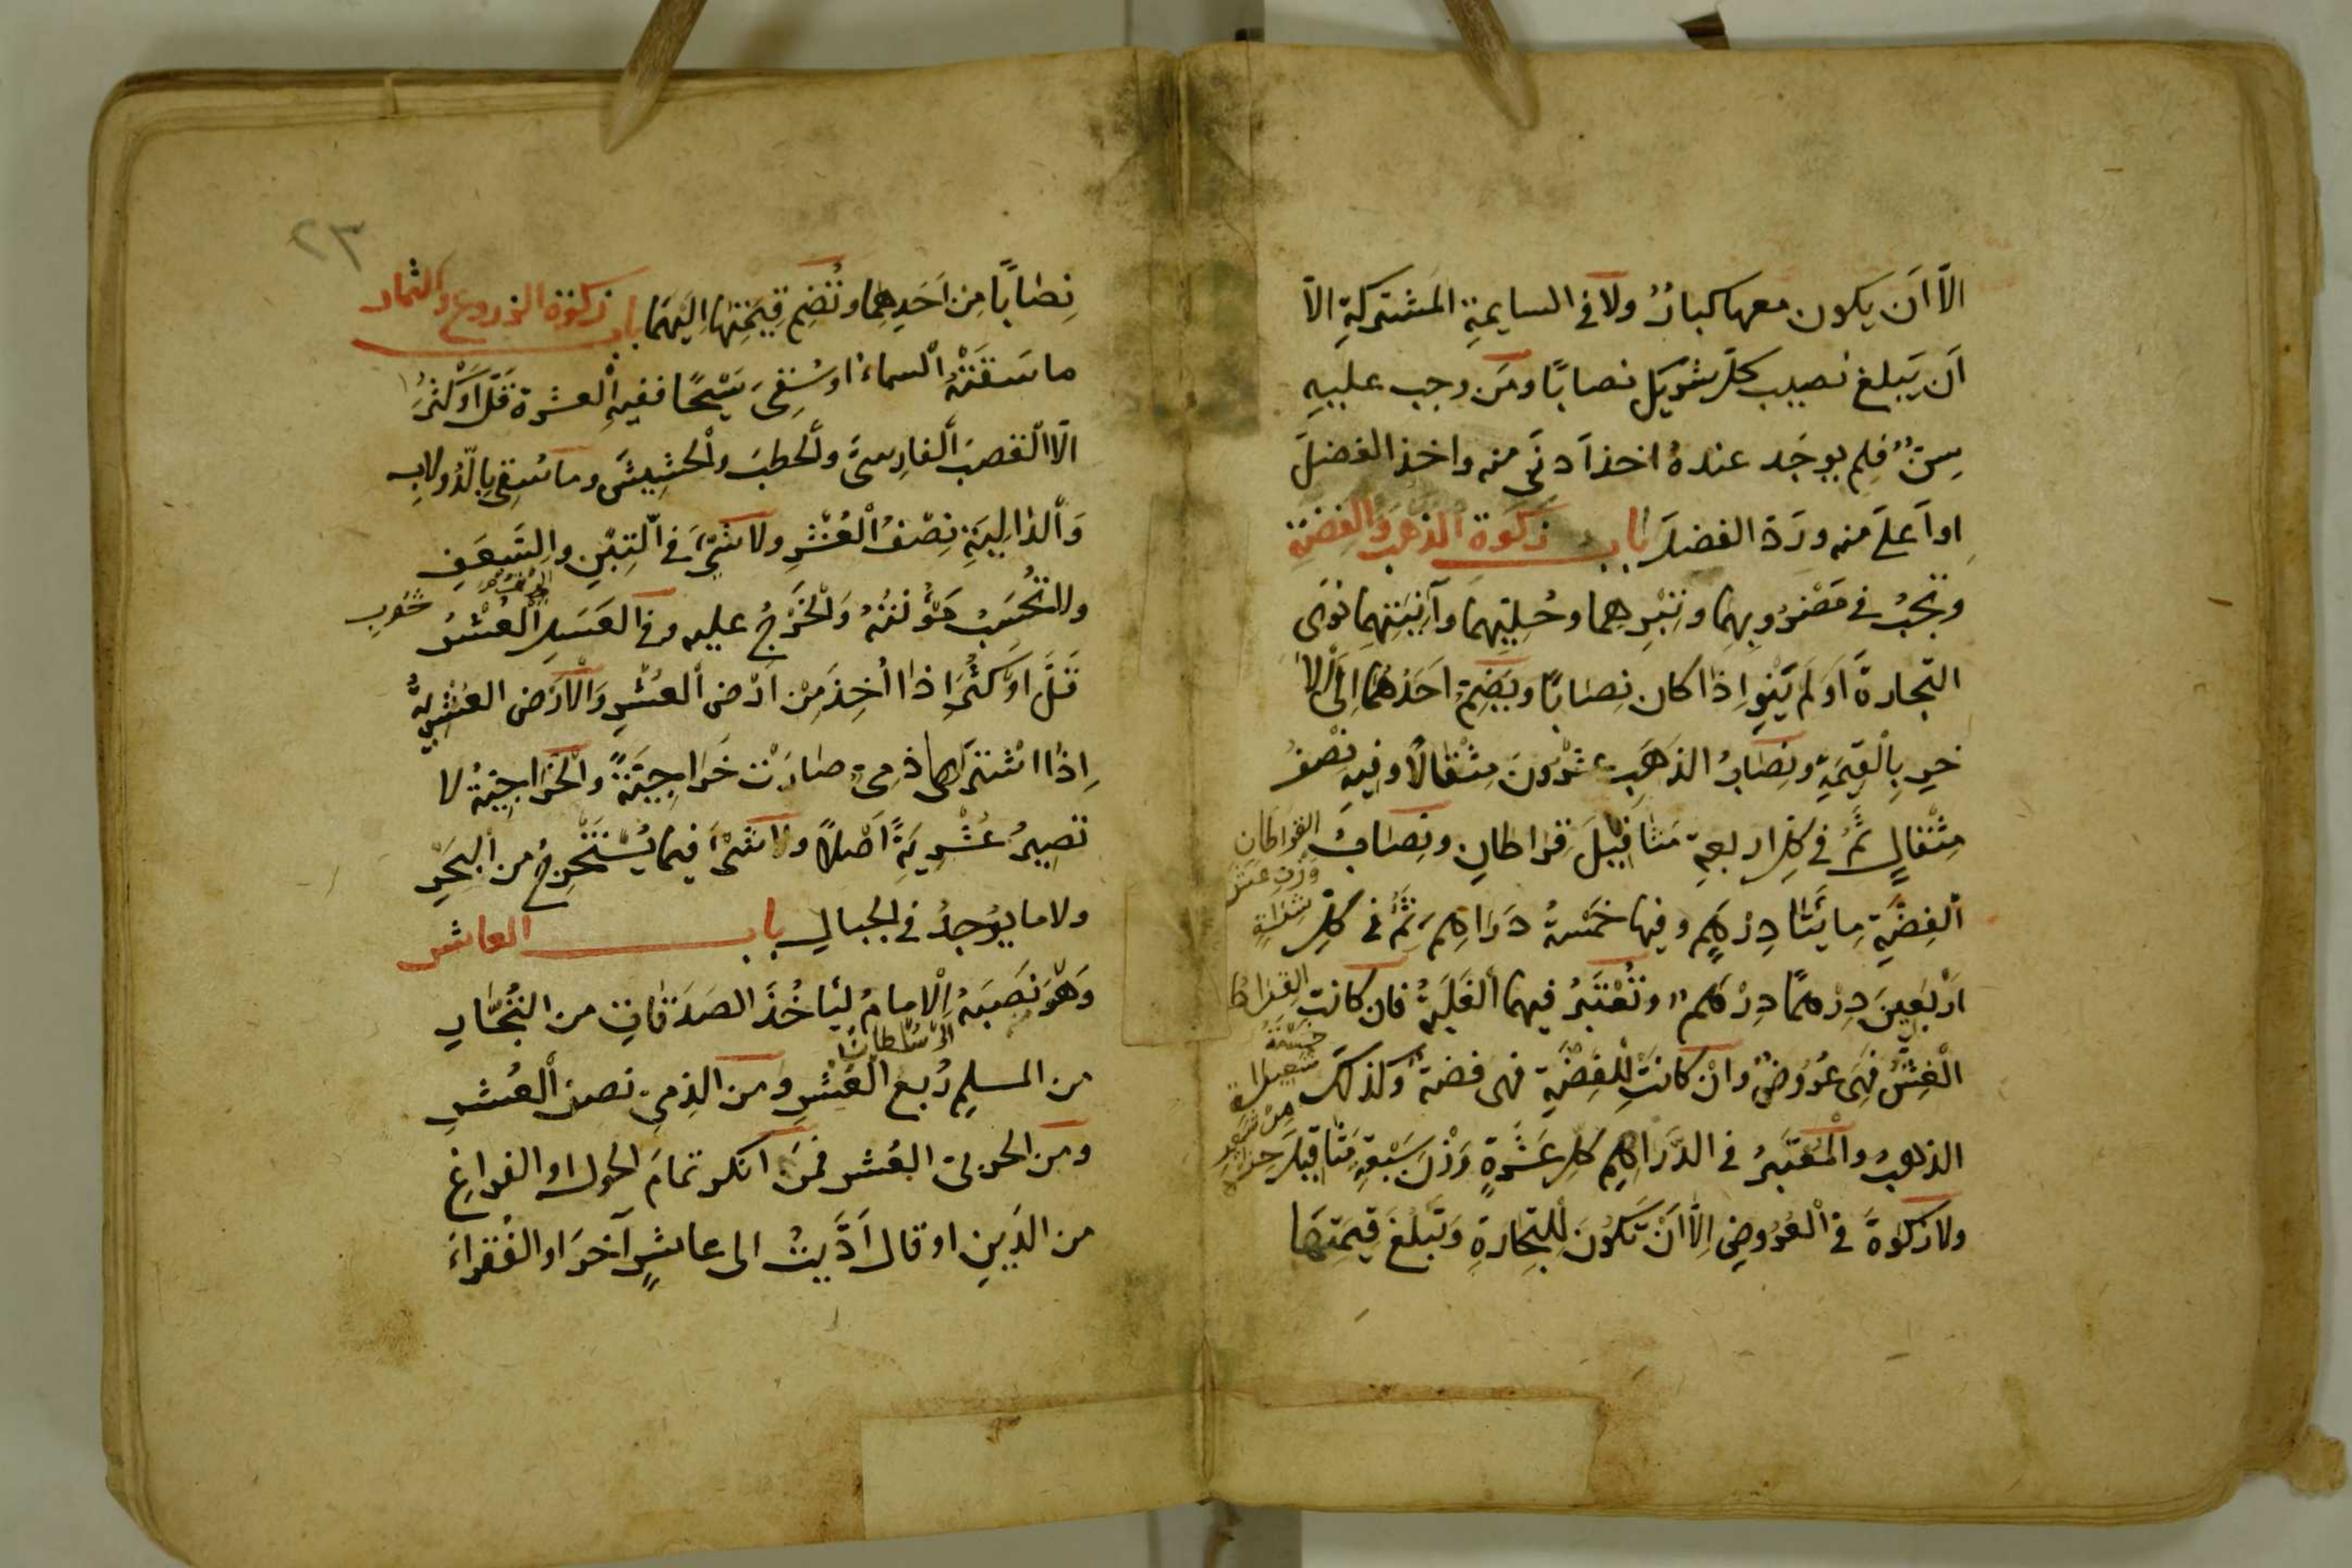 الّا اَن يكون معها كبارٌ ولا فى السايمةِ المشتركةِ الاّ
اَن يَبلغ نصيب كلّ شريكٍ نصابًا ومَن وجب عليهِ
سِنٌّ فلم يوجَد عندهُ اخذ اَدنَى منه واخذ الفضلَ
او اَعلَى منه وردّ الفضلَ باب زكوة الذهب والفضّة
وتجبُ فى مَضْرُوبِهِما وتِبْرِهما وحُليّهِما وآنِيَتِهِما نوَى
التّجارةَ اَو لَم يَنْوِ اِذا كان نِصابًا ويُضمّ احَدهُما اِلَى الا
خرِ بِالْقيمَةِ ونِصَابُ الذهَبِ عشْرُونَ مِثْقالاً وفيهِ نِصْفُ
مِثْقالٍ ثُمَّ فى كلّ اربعة مَثاقِيلَ قِرَاطانِ ونِصَابُ
الْفِضّةِ مِايَتَا دِرْهَمٍ وفيها خَمْسَةُ دَرَاهِمَ ثُمَّ فى كلّ
اَرْبَعينَ دِرْهمًا دِرْهَمٌ وتُعْتَبَرُ فيهما الْغَلَبَةُ فان كانت
الْغِشُّ فَهِىَ عُرُوضٌ وانْ كانَتِ لِلْفِضّةِ فهى فضة وكذلكَ
الذهبُ والْمُعْتَبَرُ فى الدّرَاهِمِ كلّ عَشَرةٍ وَزْنُ سَبْعَةِ مَثَاقيلَ
ولا زكوةَ فى الْعُرُوضِ اِلاّ اَنْ تَكُونَ لِلتِّجَارةِ وَتَبلُغَ قيمَتهَا
القراطان
وزن عشر
القيراط
خمسة
شعيرات
٢٣
نِصَابًا مِن اَحَدِهِما وتُضم قِيمَتها اِلَيهمَا باب زكوة الزروع والثمار
ما سَقَتْهُ السماءُ او سُقِىَ سَيْحًا ففيهِ العشر قَلّ اَوْ كَثُرَ
الّا القصبَ الفارِسىَّ والحطبَ والحشِيشَ وما سُقِى بالدّولابِ
وَالدالِيَةِ نِصْفُ الْعُشْرِ ولا شَىْءَ فى التِبْنِ والسّعَفِ
ولا تُحْسَبُ مَؤُنَتُهُ وَالْخَرْجُ عليه وفى العَسَلِ الْعُشْرُ
قَلَّ اَوْ كَثُرَ اِذا اُخِذَ مِنْ اَرْضِ العُشْرِ وَالْاَرْض العُشْريّةُ
اِذا اشْتَرَاها ذمىّ صارَتْ خَرَاجِيَّةً والْخَرَاجِيَّةُ لا
تصيرُ عُشْريَةً اَصْلاً ولا شَىْءَ فيما يُسْتَخْرجُ من الْبَحْرِ
ولا ما يوُجدُ فى الجبالِ باب العاشر
وَهُوَ مَن نَصَبَهُ الْاِمامُ لِيَأخُذَ الصَدَقَاتِ من التُجّارِ
السّلطان
من المسلمِ رُبع الْعُشْرِ ومن الذِمىّ نصف الْعُشرِ
ومن الحربىّ العُشر فمَن انكر تمامَ الحول او الفراغ
من الدَينِ او قال اَدَّيتُ الى عاشرٍ آخرَ او الفُقراءَ